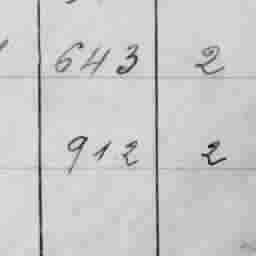 643 2
912 2